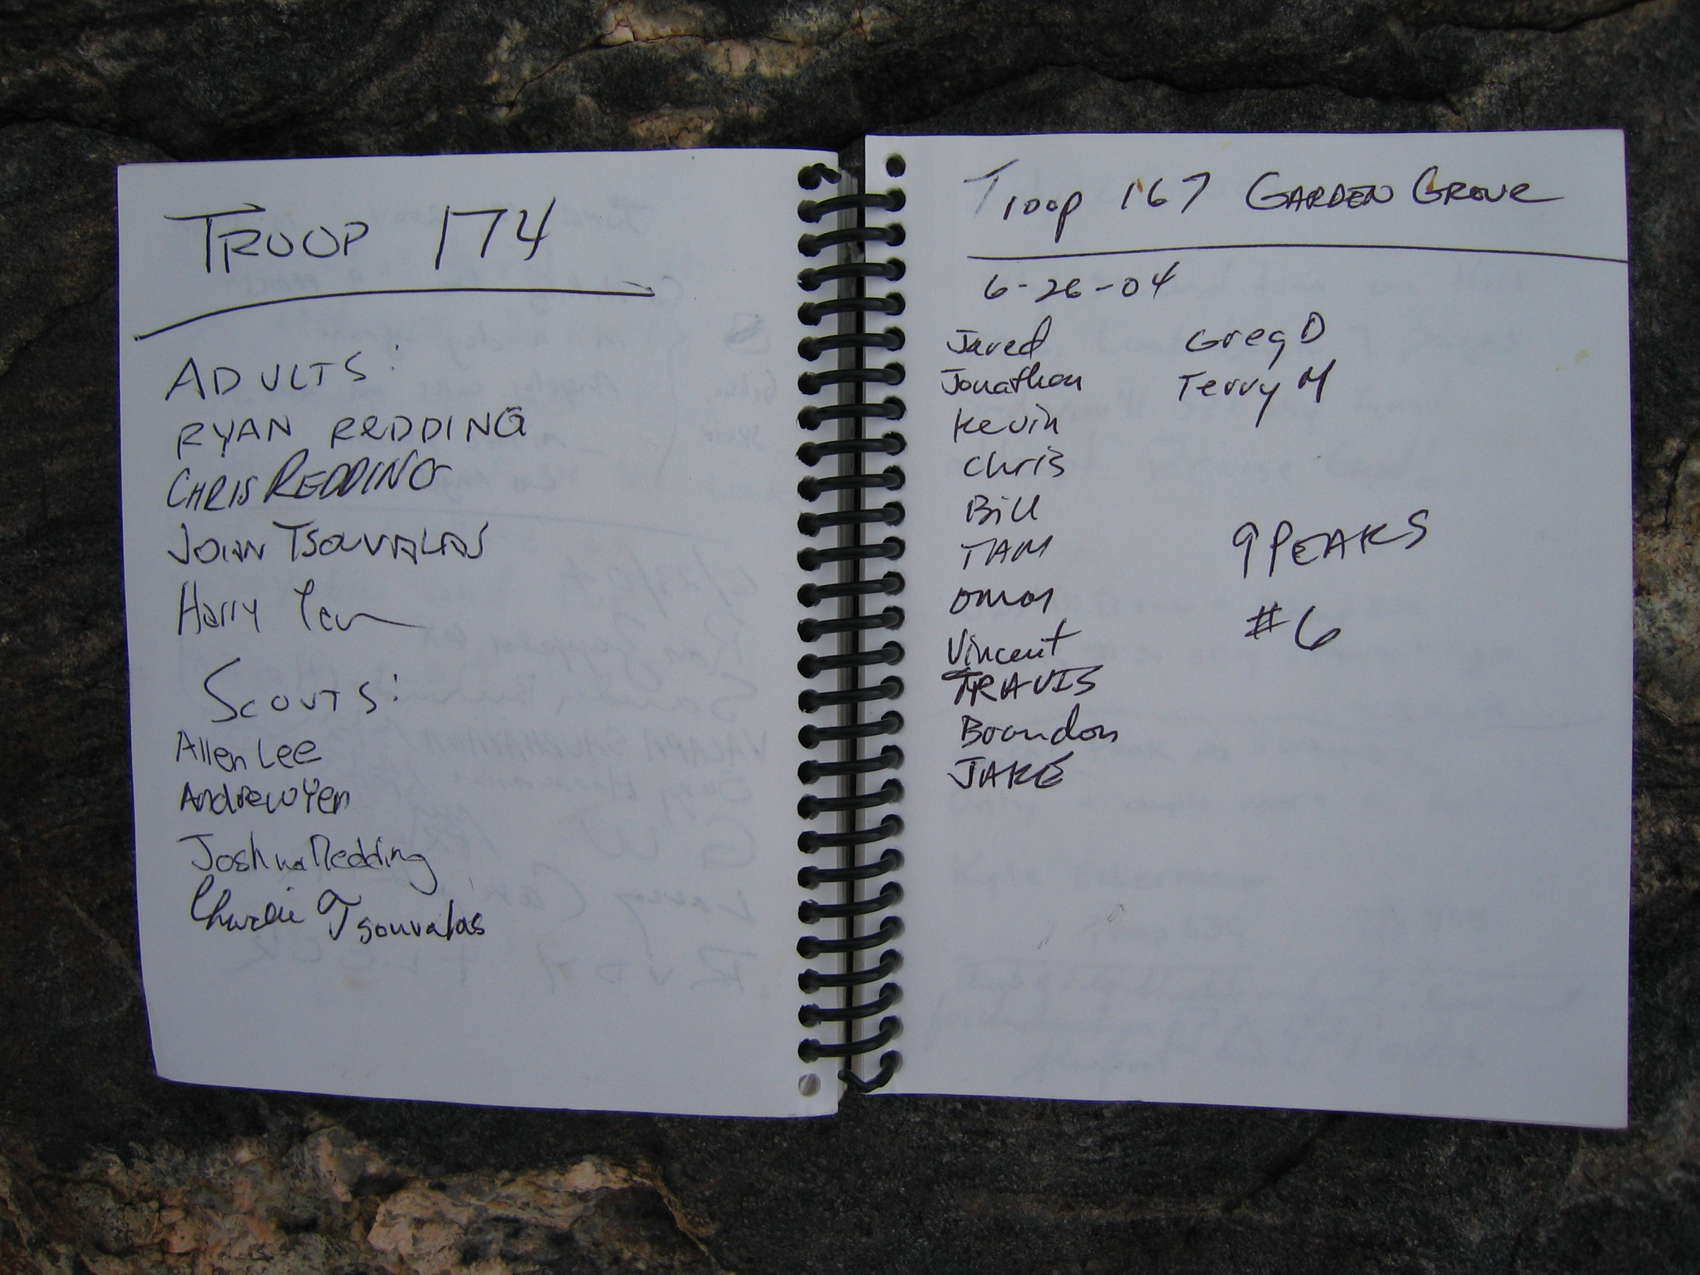 TROOP 174
ADULTS:
RYAN REDDING
CHRIS REDDING
JOHN TSOUVALAS
Harry Yen
SCOUTS:
Allen Lee
Andrew Yen
Joshua Redding
Charlie Tsouvalas
Troop 167 GARDEN GROVE
6-26-04
Jared
Greg D
Jonathon
Terry M
Kevin
Chris
Bill
TAM
Omar
Vincent
TRAVIS
Brandon
JAKE
9 PEAKS
#6